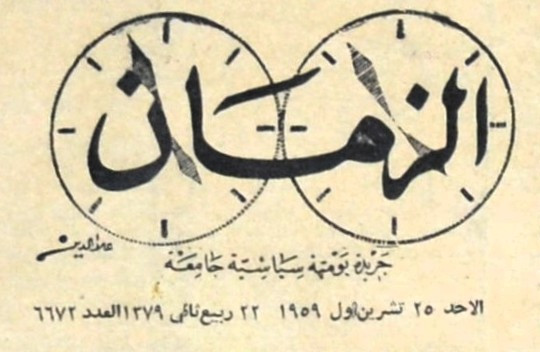 الزمان
علاء الدين
جريدة يومية سياسية جامعة
الاحد ٢٥ تشرين اول ١٩٥٩ ٢٢ ربيع ثاني ١٣٧٩ العدد ٦٦٧٢